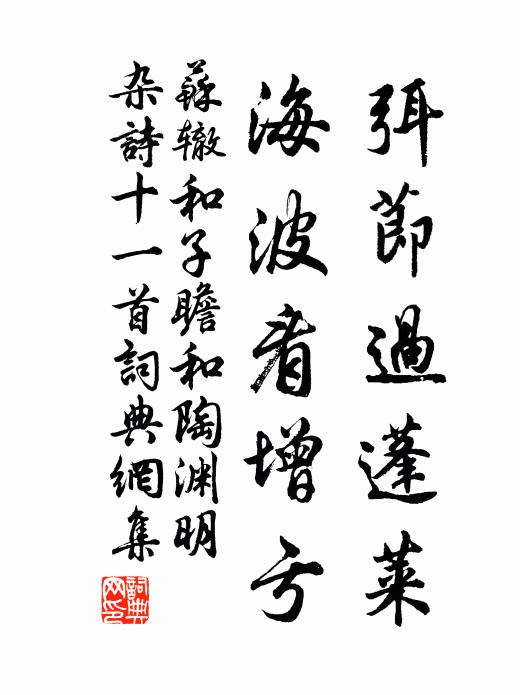 弭節過蓬萊
海波看增虧
蘇轍和子瞻和陶渊明
杂詩十一首詞典網集
詞典网印